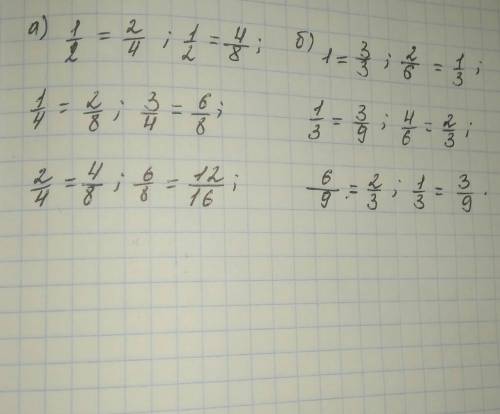 а) 1/2 = 2/4 ; 1/2 = 4/8 ;
1/4 = 2/8 ; 3/4 = 6/8 ;
2/4 = 4/8 ; 6/8 = 12/16 ;
б) 1 = 3/3 ; 2/6 = 1/3 ;
1/3 = 3/9 ; 4/6 = 2/3 ;
6/9 = 2/3 ; 1/3 = 3/9 .